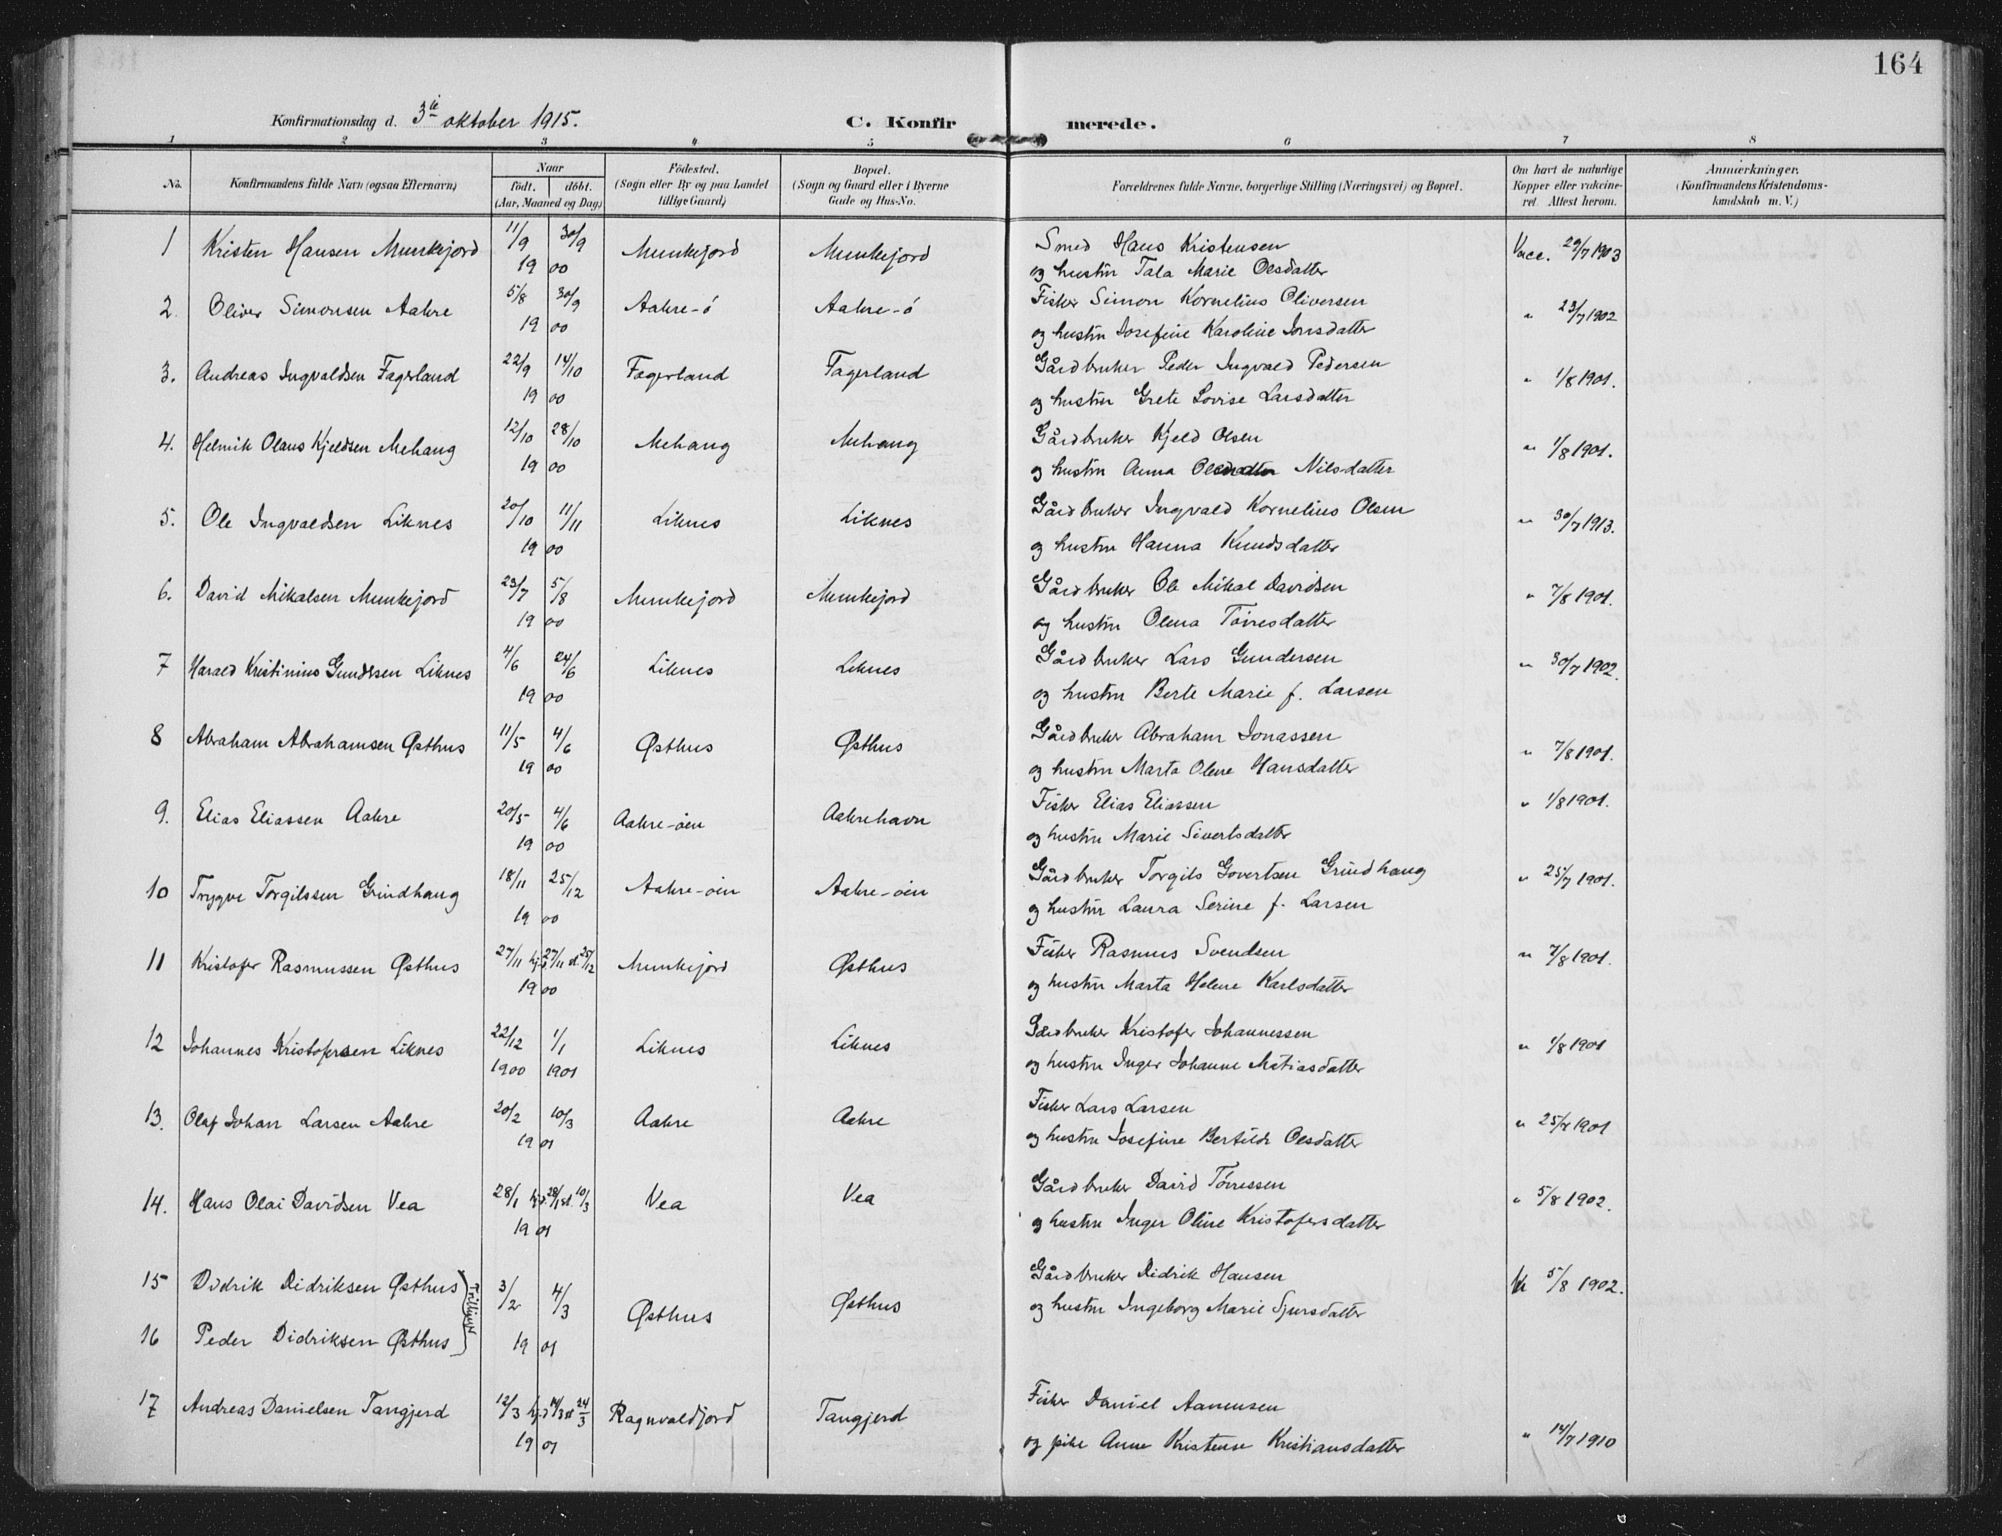 164
Konfirmationsdag d. 3die oktober 1915. C. Konfirmerede.
1 2 3 4 5 6 7 8
No. Konfirmandens fulde Navn (ogsaa Efternavn) Naar födt. döbt. (Aar, Maaned og Dag) Födested. (Sogn eller By og paa Landet tillige Gaard) Bopæl. (Sogn og Gaard eller i Byerne Gade og Hus-No. Forældrenes fulde Navne, borgerlige Stilling (Næringsvei) og Bopæl. Om havt de naturlige Kopper eller vakcineret. Attest herom. Anmærkninger. (Konfirmandens Kristendomskundskab m. V.)
1 Kristen Hansen Munkejord 11/9 30/9 1900 Munkejord Munkejord Smed Hans Kristensen Vacc. 29/7 1903
og hustru Tala Marie Olsdatter
2 Oliver Simonsen Aakre 5/8 30/9 1900 Aakre-ö Aakre-ö Fisker Simon Kornelius Oliversen " 23/7 1902
og hustru Josefine Karoline Jonsdatter
3. Andreas Ingvaldsen Fagerland 22/9 14/10 1900 Fagerland Fagerland Gårdbruker Peder Ingvald Pedersen " 1/8 1901.
og hustru Grete Lovise Larsdatter
4. Helmik Olaus Kjeldsen Mehang 12/10 28/10 1900 Mehang Mehang Gårdbruker Kjeld Olsen " 1/8 1901.
og hustru Anna Nilsdatter
5. Ole Ingvaldsen Liknes 20/10 11/11 1900 Liknes Liknes Gårdbruker Ingvald Kornelius Olsen " 30/7 1913.
og hustru Hanna Knudsdatter
6. David Mikalsen Munkejord 23/7 5/8 1900 Munkejord Munkejord Gårdbruker Ole Mikal Davidsen " 7/8 1901.
og hustru Olena Tönesdatter
7 Harald Kristinius Gundersen Liknes 4/6 24/6 1900 Liknes Liknes Gårdbruker Lars Gundersen " 30/7 1902.
og hustru Berte Marie f. Larsen
8 Abraham Abrahamsen Østhus 11/5 4/6 1900 Østhus Østhus Gårdbruker Abraham Jonassen " 7/8 1901.
og hustru Marta Olene Hansdatter
9. Elias Eliassen Aakre 20/5 4/6 1900 Aakre-öen Aakrehavn Fisker Elias Eliassen " 1/8 1901.
og hustru Marie Sivertsdatter
10 Trygve Torgilssen Grindhaug 18/11 25/12 1900 Aakre-öen Aakre-öen Gårdbruker Torgils Govertsen Grindhaug " 25/7 1901.
og hustru Laura Serine f. Larsen
11 Kristofer Rasmussen Østhus 27/11 hj.d. 27/11 st. 25/12 1900 Munkejord Østhus Fisker Rasmus Svendsen " 7/8 1901.
og hustru Marta Helene Karlsdatter
12 Johannes Kristofersen Liknes 22/12 1900 1/1 1901 Liknes Liknes Gårdbruker Kristofer Johannessen " 1/8 1901
og hustru Inger Johanne Matiasdatter
13. Olaf Johan Larsen Aakre 20/2 10/3 1901 Aakre Aakre Fisker Lars Larsen " 25/7 1901
og hustru Josefine Bertilde Olsdatter
14. Hans Olai Davidsen Vea 28/1 hj.d. 28/1 st. 10/3 1901 Vea Vea Gårdbruker David Tönnessen " 5/8 1902.
og hustru Inger Oline Kristofersdatter
15 Didrik Didriksen Østhus Trillinger 3/2 4/3 Østhus Østhus Gårdbruker Didrik Hansen 5/8 1902.
og hustru Ingeborg Marie Sjursdatter
16 Peder Didriksen Østhus 1901
17 Andreas Danielsen Tangjerd 12/3 24/3 1901 Ragnvaldjord Tangjerd Fisker Daniel Aanensen " 14/7 1910
og pike Anne Kristense Kristiansdatter